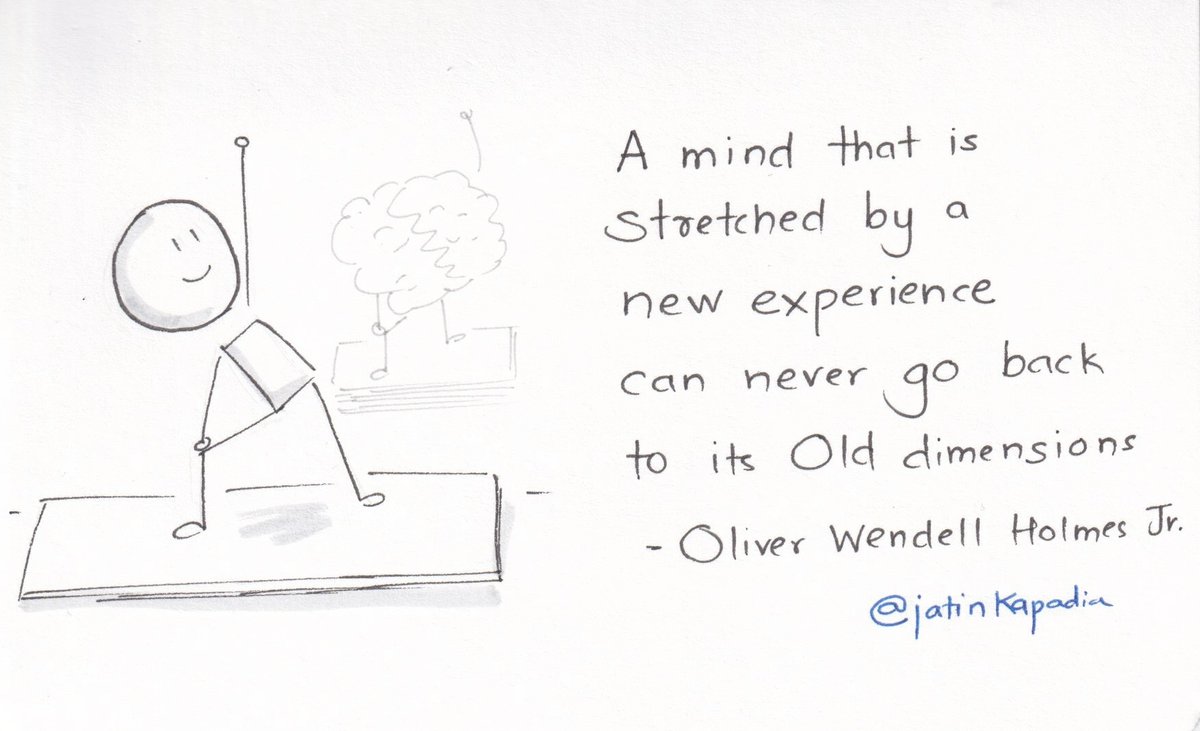 A mind that is
stretched by a
new experience
can never go back
to its Old dimensions
- Oliver Wendell Holmes Jr.
@jatinkapadia